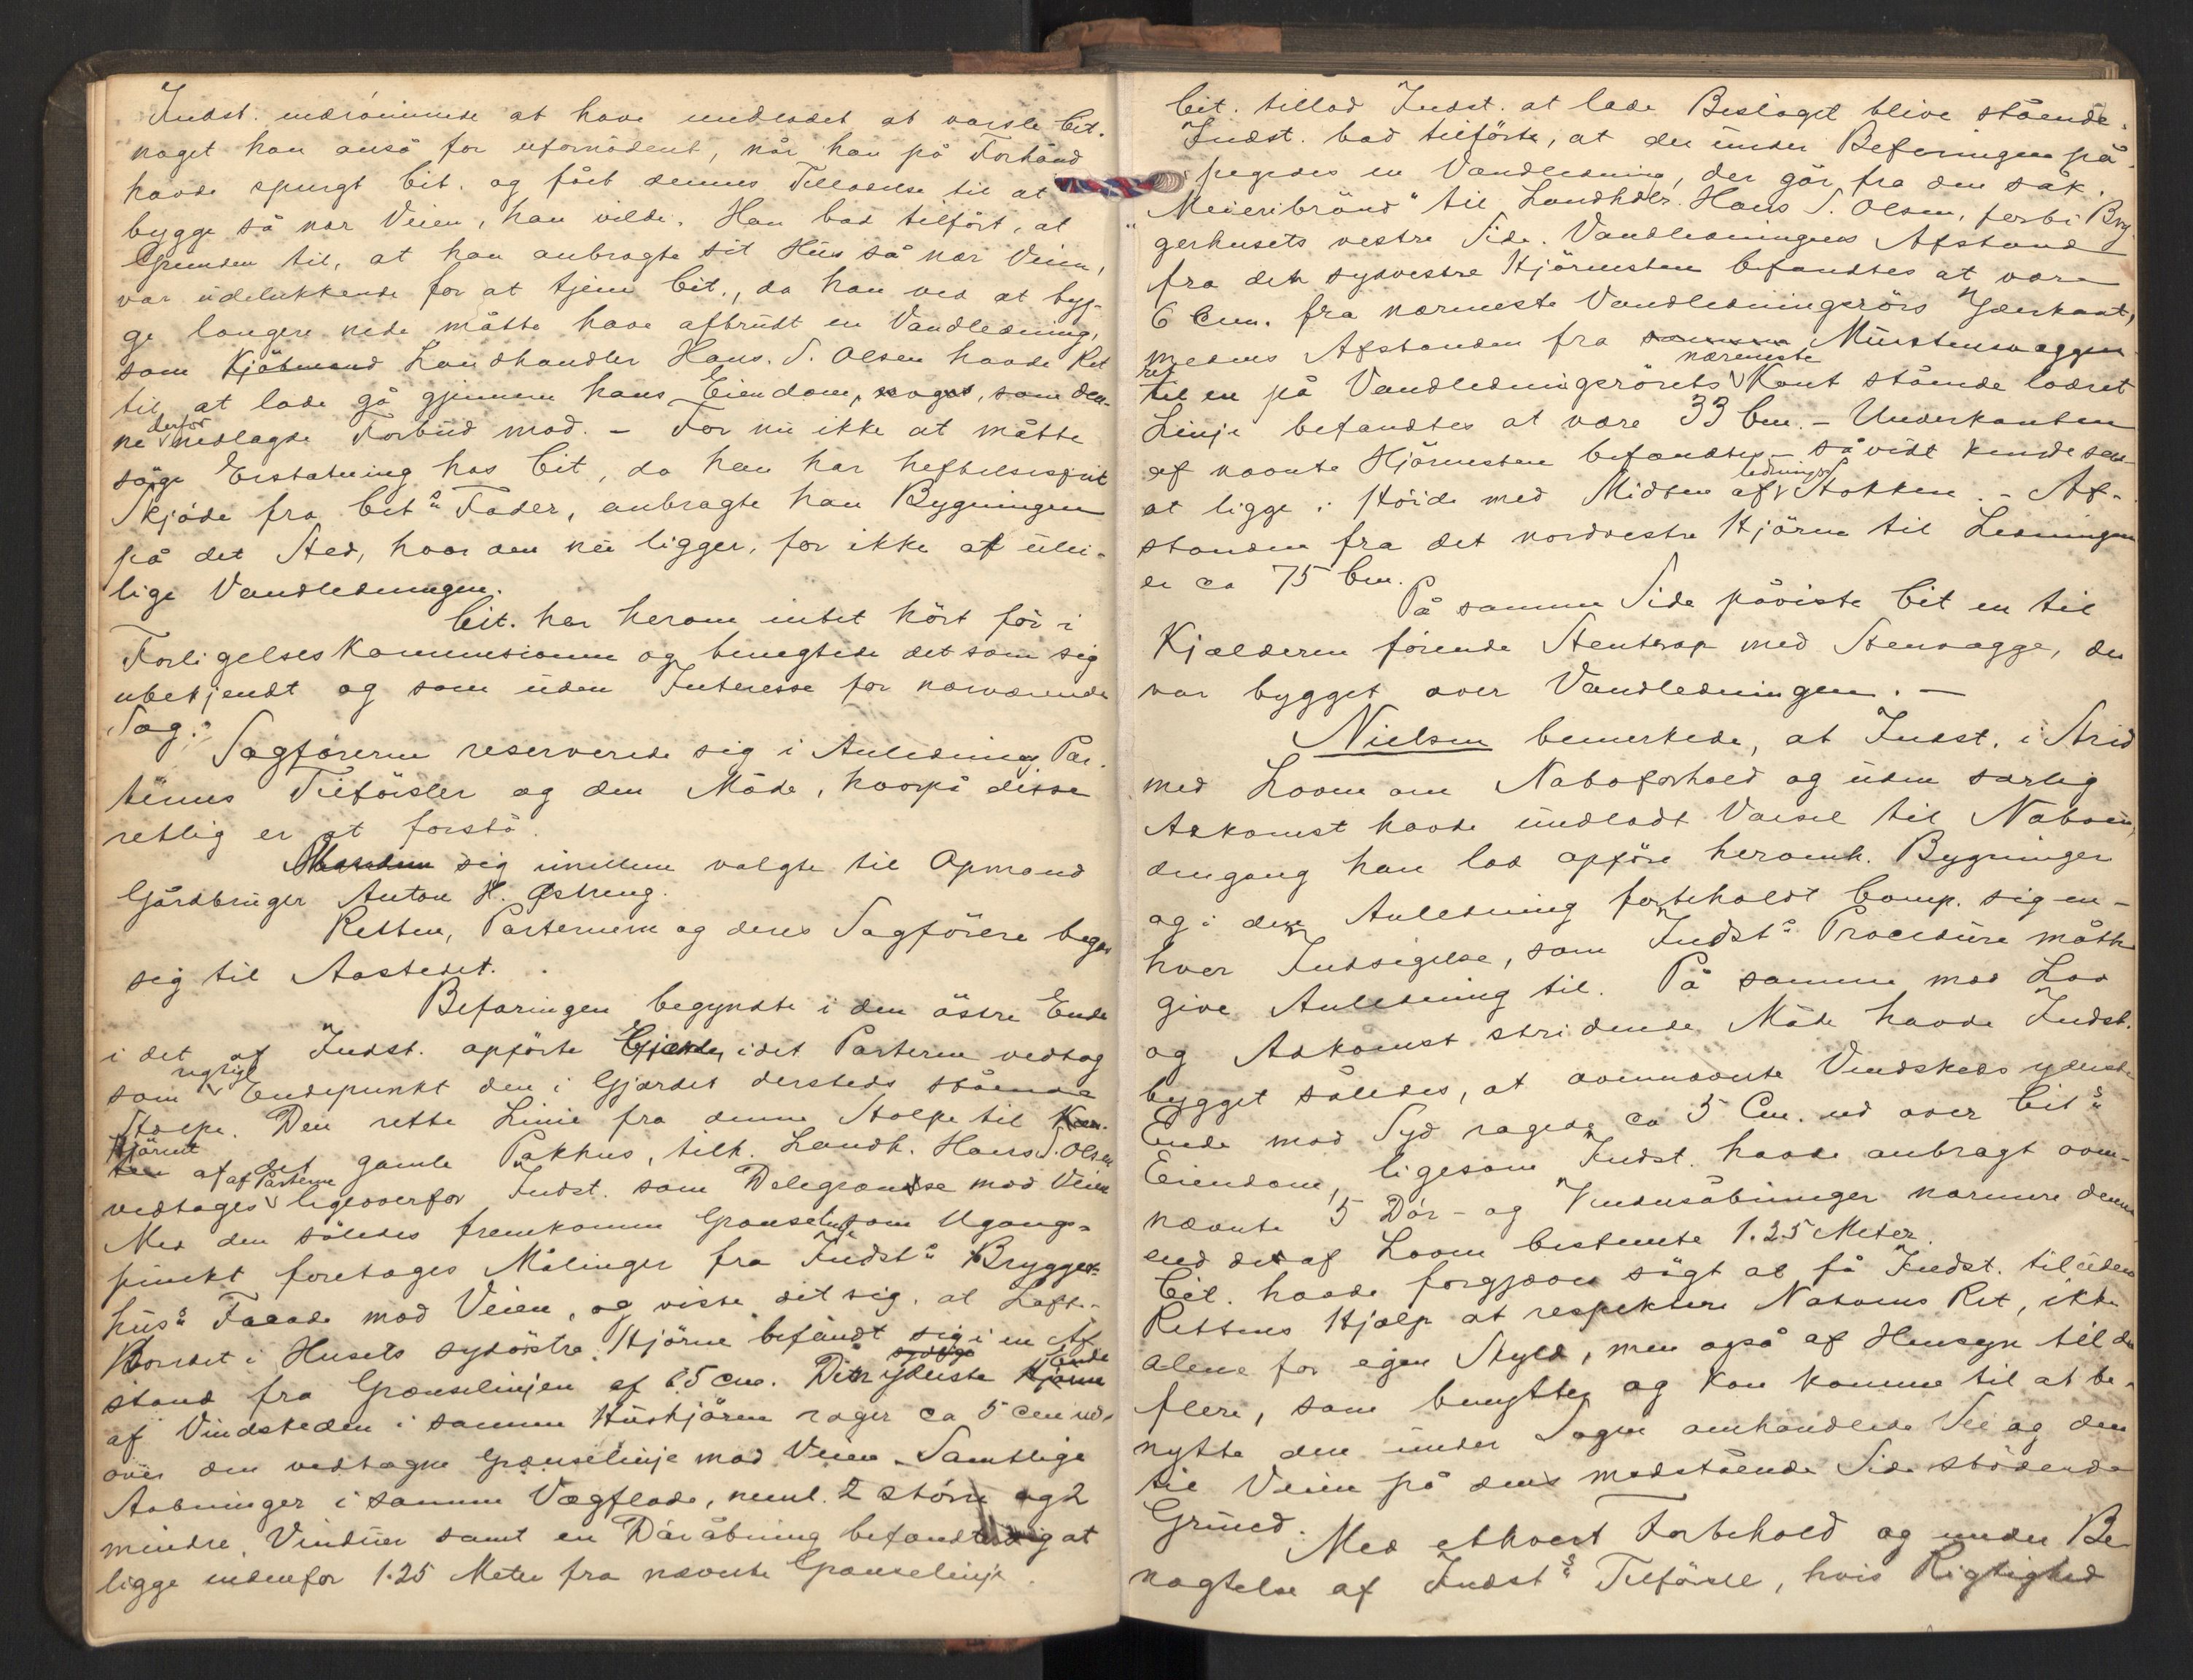 Indst. indrömmede at have undladt at varsle Cit.
noget han anså for ufornödent, når han på Forhånd
havde spurgt Cit. og fået dennes Tilladelse til at
bygge så nær Veien, han vilde. Han bad tilfört, at
Grunden til, at han anbragte sit Hus så nær Veien,
var udelukkende for at tjene Cit., da han ved at byg-
ge længere nede måtte have afbrudt en Vandledning,
som Kjöbmand Landhandler Hans. S. Olsen havde Ret
til at lade gå gjennem hans Eiendom, noget, som den-
ne derfor nedlagde Forbud mod. - For nu ikke at måtte
söge Erstatning hos Cit, da han har heftelsesfrit
Skjöde fra Cits Fader, anbragte han Bygningen
på det Sted, hvor den nu ligger, for ikke at ulei-
lige Vandledningen.
Cit. har herom intet hört för i
Forligelseskommissionen og benegtede det som sig
ubekjendt og som uden Interesse for nærværende
Sag.
Sagförerne reserverede sig i Anledning Par-
ternes Tilförsler og den Måde, hvorpå disse
retlig er at forstå.
Mændene sig imellem valgte til Opmand
Gårdbruger Anton H. Østreng.
Retten, Parterne og deres Sagförere begav
sig til Aastedet.
Befaringen begyndte i den östre Ende
i det af Indst. opförte Gjærde, idet Parterne vedtog
som rigtigt Endepunkt den i Gjærdet dersteds stående
Stolpe. Den rette Linie fra denne Stolpe til
Hjörnet af det gamle Pakhus, tilh. Landh. Hans S. Olsen
vedtages af Parterne ligeoverfor Indst. som Delegrændse mod Veien
Med den således fremkomne Grænselinje som Udgangs-
punkt foretages Målinger fra Indsts Brygger-
hus's Facade mod Veien, og viste det sig, at Loft-
Bordet i Husets sydöstre Hjörne befandt sig i en Af-
stand fra Grænselinjen af 65 cm. Den yderste sydlige Ende
af Vindskeden i samme Hushjörne rager ca 5 cm ud
over den vedtagne Grænselinje mod Veien. Samtlige
Aabninger i samme Vægflade, neml. 2 större og 2
mindre Vinduer samt en Döråbning befandtes at
ligge indenfor 1.25 Meter fra nævnte Grænselinje.
Cit. tillod Indst. at lade Beslaget blive stående.
Indst. bad tilförte, at der under Befaringen på-
pegedes en Vandledning, der går fra den såk.
"Meieribrönd" til Landhdlr. Hans S. Olsen, forbi Bryg-
gerhusets vestre Side. Vandledningens Afstand
fra det sydvestre Hjörnesten befandtes at være
6 Cm. fra nærmeste Vandledningsrörs Yderkant,
medens Afstanden fra Murstensvæggen
ret til en på Vandledningsrörets nærmeste Kant stående lodret
Linje befandtes at være 33 Cm. - Underkanten
af nævnte Hjörnesten befandtes - såvidt kunde sees
at ligge i Höide med Midten af Lednings Stokken. - Af-
standen fra det nordvestre Hjörne til Ledningen
er ca 75 Cm.
På samme Side påviste Cit en til
Kjælderen förende Stentrap med Stenvægge, der
var bygget over Vandledningen. -
Nielsen bemerkede, at Indst. i Strid
med Loven om Naboforhold og uden særlig
Adkomst havde undladt Varsel til Naboen,
dengang han lod opföre heromh. Bygninger
og i den Anledning forbeholdt Comp. sig en-
hver Indsigelse, som Indsts Procedure måtte
give Anledning til. På samme mod Lov
og Adkomst stridende Måde havde Indst.
bygget således, at ovennævnte Vindskeds yderste
Ende mod Syd ragede ca 5 Cm. ud over Cits
Eiendom, ligesom Indst. havde anbragt oven-
nævnte 5 Dör- og Vinduesåbninger nærmere denne
end det af Loven bestemte 1.25 Meter.
Cit. havde forgjæves sögt at få Indst. til uden
Rettens Hjælp at respektere Naboens Ret, ikke
alene for egen Skyld, men også af Hensyn til de
flere, som benytter og kan komme til at be-
nytte den under Sagen omhandlede Vei og den
til Veien på den modstående Side stödende
Grund.
Med ethvert Forbehold og under Be-
nægtelse af Indsts Tilförsel, hvis Rigtighed